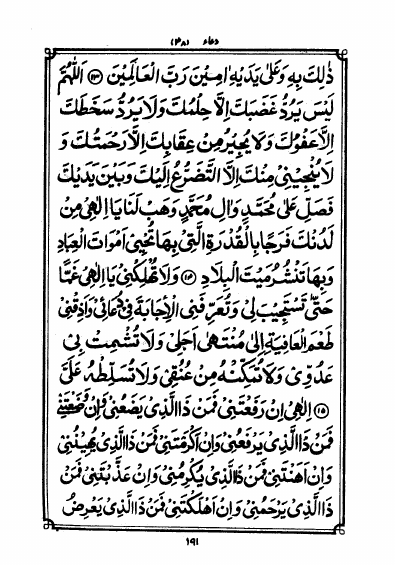 دعاء (۴۸)
ذٰلِكَ بِهٖ وَعَلٰى يَدَيْهِ اٰمِيْنَ رَبَّ الْعَالَمِيْنَ ﴿۱۳﴾ اَللّٰهُمَّ
لَيْسَ يَرُدُّ غَضَبَكَ اِلَّا حِلْمُكَ وَلَا يَرُدُّ سَخَطَكَ
اِلَّا عَفْوُكَ وَلَا يُجِيْرُ مِنْ عِقَابِكَ اِلَّا رَحْمَتُكَ وَ
لَا يُنْجِيْنِيْ مِنْكَ اِلَّا التَّضَرُّعُ اِلَيْكَ وَبَيْنَ يَدَيْكَ
فَصَلِّ عَلٰى مُحَمَّدٍ وَاٰلِ مُحَمَّدٍ وَهَبْ لَنَا يَا اِلٰهِيْ مِنْ
لَدُنْكَ فَرَجًا بِالْقُدْرَةِ الَّتِيْ بِهَا تُحْيِيْ اَمْوَاتَ الْعِبَادِ
وَبِهَا تَنْشُرُ مَيْتَ الْبِلَادِ ﴿۱۴﴾ وَلَا تُهْلِكْنِيْ يَا اِلٰهِيْ غَمًّا
حَتّٰى تَسْتَجِيْبَ لِيْ وَتُعَرِّفَنِي الْاِجَابَةَ فِيْ دُعَائِيْ وَاَذِقْنِيْ
طَعْمَ الْعَافِيَةِ اِلٰى مُنْتَهٰى اَجَلِيْ وَلَا تُشْمِتْ بِيْ
عَدُوِّيْ وَلَا تُمَكِّنْهُ مِنْ عُنُقِيْ وَلَا تُسَلِّطْهُ عَلَيَّ
﴿۱۵﴾ اِلٰهِيْ اِنْ رَفَعْتَنِيْ فَمَنْ ذَا الَّذِيْ يَضَعُنِيْ وَاِنْ وَضَعْتَنِيْ
فَمَنْ ذَا الَّذِيْ يَرْفَعُنِيْ وَاِنْ اَكْرَمْتَنِيْ فَمَنْ ذَا الَّذِيْ يُهِيْنُنِيْ
وَاِنْ اَهَنْتَنِيْ فَمَنْ ذَا الَّذِيْ يُكْرِمُنِيْ وَاِنْ عَذَّبْتَنِيْ فَمَنْ
ذَا الَّذِيْ يَرْحَمُنِيْ وَاِنْ اَهْلَكْتَنِيْ فَمَنْ ذَا الَّذِيْ يَعْرِضُ
۱۹۱